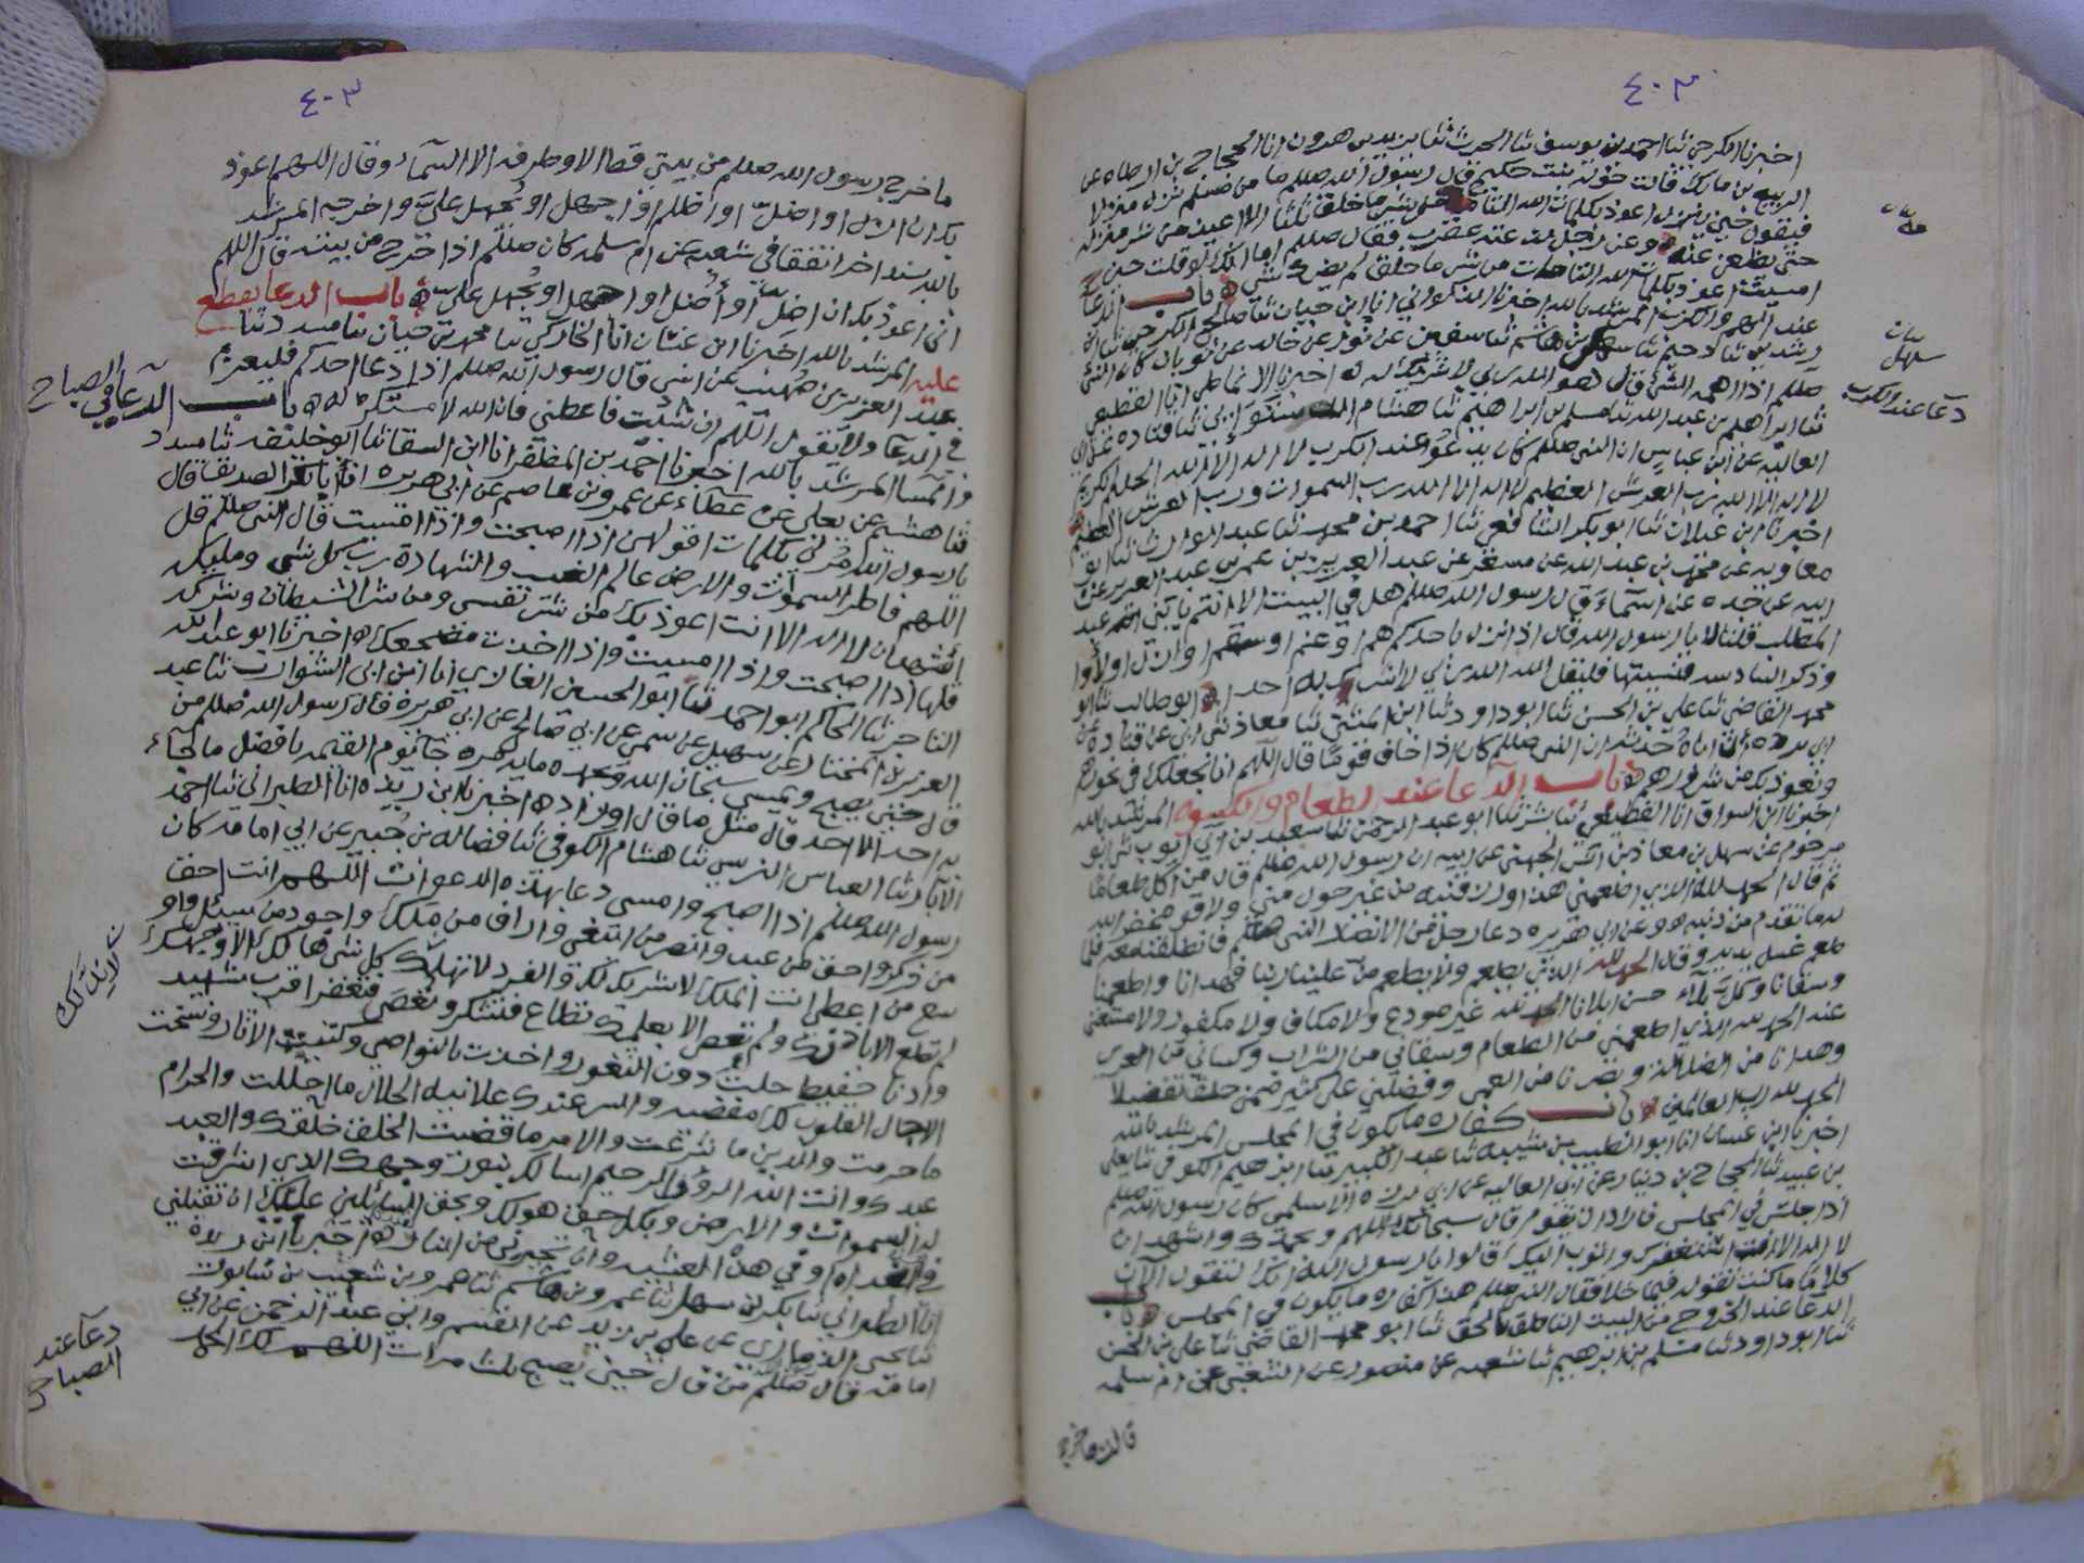 ٤٠٣
اخبرنا الكرجي ثنا احمد بن يوسف ثنا الحرث ثنا يزيد بن هرون انا الحجاج بن ارطاه عن
الربيع بن مالك قالت خوله بنت حكيم قال رسول الله صللم ما من مسلم نزل منزلا
فيقول حين ينزل اعوذ بكلمات الله التامات من شر ما خلق ثلثا الا اعيذ من شر منزله
حتى يظعن عنه ه وعن رجل لدغته عقرب فقال صللم اما انك لو قلت حين
امسيت اعوذ بكلمات الله التامات من شر ما خلق لم يضرك شي ه باب الدعا
عند الهم والكرب المرشد بالله اخبرنا الذكواني انا ابن حيان ثنا صالح الكرجي ثنا ابن
رشدين ثنا دحيم ثنا سهل بن هاشم ثنا سفين عن ثور عن خالد عن ثوبان كان النبي
صللم اذا اهمه الشي قال هو الله ربي لا شريك له ه اخبرنا الانماطي انا القطيعي
ثنا ابراهيم بن عبد الله ثنا مسلم بن ابراهيم ثنا هشام ثنا قتاده عن ابي
العاليه عن ابن عباس ان النبي صللم كان يدعو عند الكرب لا اله الا الله الحليم الكريم
لا اله الا الله رب العرش العظيم لا اله الا الله رب السموات ورب العرش العظيم
اخبرنا ابن غيلان ثنا ابو بكر الشافعي ثنا احمد بن محمد ثنا عبد الوارث ثنا ابو
معاويه عن محمد بن عبد الله عن مسعر عن عبد العزيز بن عمر بن عبد العزيز عن
ابيه عن جده عن اسماء قال رسول الله صللم هل في البيت الا انتم يا بني عبد
المطلب قلنا لا يا رسول الله قال اذا نزل باحدكم هم او غم او سقم او ازل او لأوا
وذكر السادسه فنسيتها فليقل الله الله ربي لا اشرك به احدا ه ابو طالب ثنا ابو
محمد القاضي ثنا علي بن الحسن ثنا ابو داود ثنا ابن المثنى ثنا معاذ ثني ابي عن قتاده عن
ابي برده ان اباه حدثه ان النبي صللم كان اذا خاف قوما قال اللهم انا نجعلك في نحورهم
ونعوذ بك من شرورهم ه باب الدعا عند الطعام والكسوه المرشد بالله
اخبرنا ابن السواق انا القطيعي ثنا بشر ثنا ابو عبد الرحمن ثنا سعيد بن ابي ايوب ثني ابو
مرحوم عن سهل بن معاذ بن انس الجهني عن ابيه ان رسول الله صللم قال من اكل طعاما
ثم قال الحمد لله الذي اطعمني هذا ورزقنيه من غير حول مني ولا قوه غفر الله
له ما تقدم من ذنبه ه وعن ابي هريره دعا رجل من الانصار النبي صللم فانطلقنا معه فلما
طعم غسل يديه وقال الحمد لله الذي يطعم ولا يطعم من علينا ربنا فهدانا واطعمنا
وسقانا وكل بلاء حسن ابلانا الحمد لله غير مودع ولا مكاف ولا مكفور ولا مستغنى
عنه الحمد لله الذي اطعمني من الطعام وسقاني من الشراب وكساني من العرى
وهدانا من الضلاله وبصرنا من العمى وفضلني على كثير ممن خلق تفضيلا
الحمد لله رب العالمين ه باب كفاره ما يكون في المجلس المرشد بالله
اخبرنا ابن غسان انا ابو الطيب بن شيبه ثنا عبد الكبير ثنا ابرهيم الكوفي ثنا يعلى
بن عبيد ثنا الحجاج بن دينار عن ابي العاليه عن ابي برزه الاسلمي كان رسول الله صللم
اذا جلس في المجلس فاراد ان يقوم قال سبحانك اللهم وبحمدك واشهد ان
لا اله الا انت استغفرك واتوب اليك قالوا يا رسول الله انك لتقول الان
كلاما ما كنت تقوله فيما خلا فقال النبي صللم هذا كفاره ما يكون في المجلس ه باب
الدعا عند الخروج من البيت الناطق بالحق ثنا ابو محمد القاضي ثنا علي بن الحسن
ثنا ابو داود ثنا مسلم بن ابرهيم ثنا شعبه عن منصور عن الشعبي عن ام سلمه
قالت ما خرج
سهل
دعا عند الكرب
٤٠٣
ما خرج رسول الله صللم من بيتي قط الا وطرفه الا السماء وقال اللهم اعوذ
بك ان ازل او اضل او اظلم او اجهل او يجهل علي واخرجه المرشد
بالله بسند اخر اتفقا في شعبه عن ام سلمه كان صللم اذا خرج من بيته قال اللهم
اني اعوذ بك ان اضل او أضل او اجهل او يجهل علي ه باب الدعا يقطع
عليه المرشد بالله اخبرنا ابن غسان انا الخاركي ثنا محمد بن حيان ثنا مسدد ثنا
عبد العزيز بن صهيب عن انس قال رسول الله صللم اذا دعا احدكم فليعزم
في الدعا ولا يقول اللهم ان شئت فاعطني فان الله لا مستكره له ه باب الدعا في الصباح
والمسا المرشد بالله اخبرنا احمد بن المظفر انا ابن السقا ثنا ابو خليفه ثنا مسدد
ثنا هشيم عن يعلى بن عطاء عن عمرو بن عاصم عن ابي هريره ان ابا بكر الصديق قال
يا رسول الله مرني بكلمات اقولهن اذا اصبحت واذا امسيت قال النبي صللم قل
اللهم فاطر السموات والارض عالم الغيب والشهادة رب كل شي ومليكه
اشهد ان لا اله الا انت اعوذ بك من شر نفسي ومن شر الشيطان وشركه
قلها اذا اصبحت واذا امسيت واذا اخذت مضجعك ه اخبرنا ابو عبد الله
التاجر ثنا الحاكم ابو احمد ثنا ابو الحسين الغازي انا ابن ابي الشوارب ثنا عبد
العزيز بن المختار عن سهيل عن سمي عن ابي صالح عن ابي هريره قال رسول الله صللم من
قال حين يصبح ويمسي سبحان الله وبحمده مايه مره جا يوم القيمه بافضل ما جاء
به احد الا احد قال مثل ما قال او زاد ه اخبرنا ابن ريذه انا الطبراني ثنا احمد
الابار ثنا العباس النرسي ثنا هشام الكوفي ثنا فضاله بن جبير عن ابي امامه كان
رسول الله صللم اذا اصبح وامسى دعا بهذه الدعوات اللهم انت احق
من ذكر واحق من عبد وانصر من ابتغي واراف من ملك واجود من سيئل واو
سع من اعطى انت الملك لا شريك لك والفرد لا تهلك كل شي هالك الا وجهك
لم تطع الا باذنك ولم تعص الا بعلمك تطاع فتشكر وتعصى فتغفر اقرب شهيد
وادنا حفيظ حلت دون الثغور واخذت بالنواصي وكتبت الاثار ونسخت
الاجال القلوب لك مفضيه والسر عندك علانيه الحلال ما احللت والحرام
ما حرمت والدين ما شرعت والامر ما قضيت الخلق خلقك والعبد
عبدك وانت الله الرؤف الرحيم اسالك بنور وجهك الذي اشرقت
له السموات والارض وبكل حق هو لك وبحق السائلين عليك ان تقبلني
في الغداه او في هذا العشيه وان تجيرني من النار ه اخبرنا ابن ريذه
انا الطبراني ثنا بكر بن سهل ثنا عمرو بن هاشم ثنا عمرو بن شعيب بن شابور
ثنا يحيى الذماري عن علي بن يزيد عن القسم وابي عبد الرحمن عن ابي
امامه قال صللم من قال حين يصبح ثلث مرات اللهم لك الحمد
لا ند لك
دعا عند
الصباح